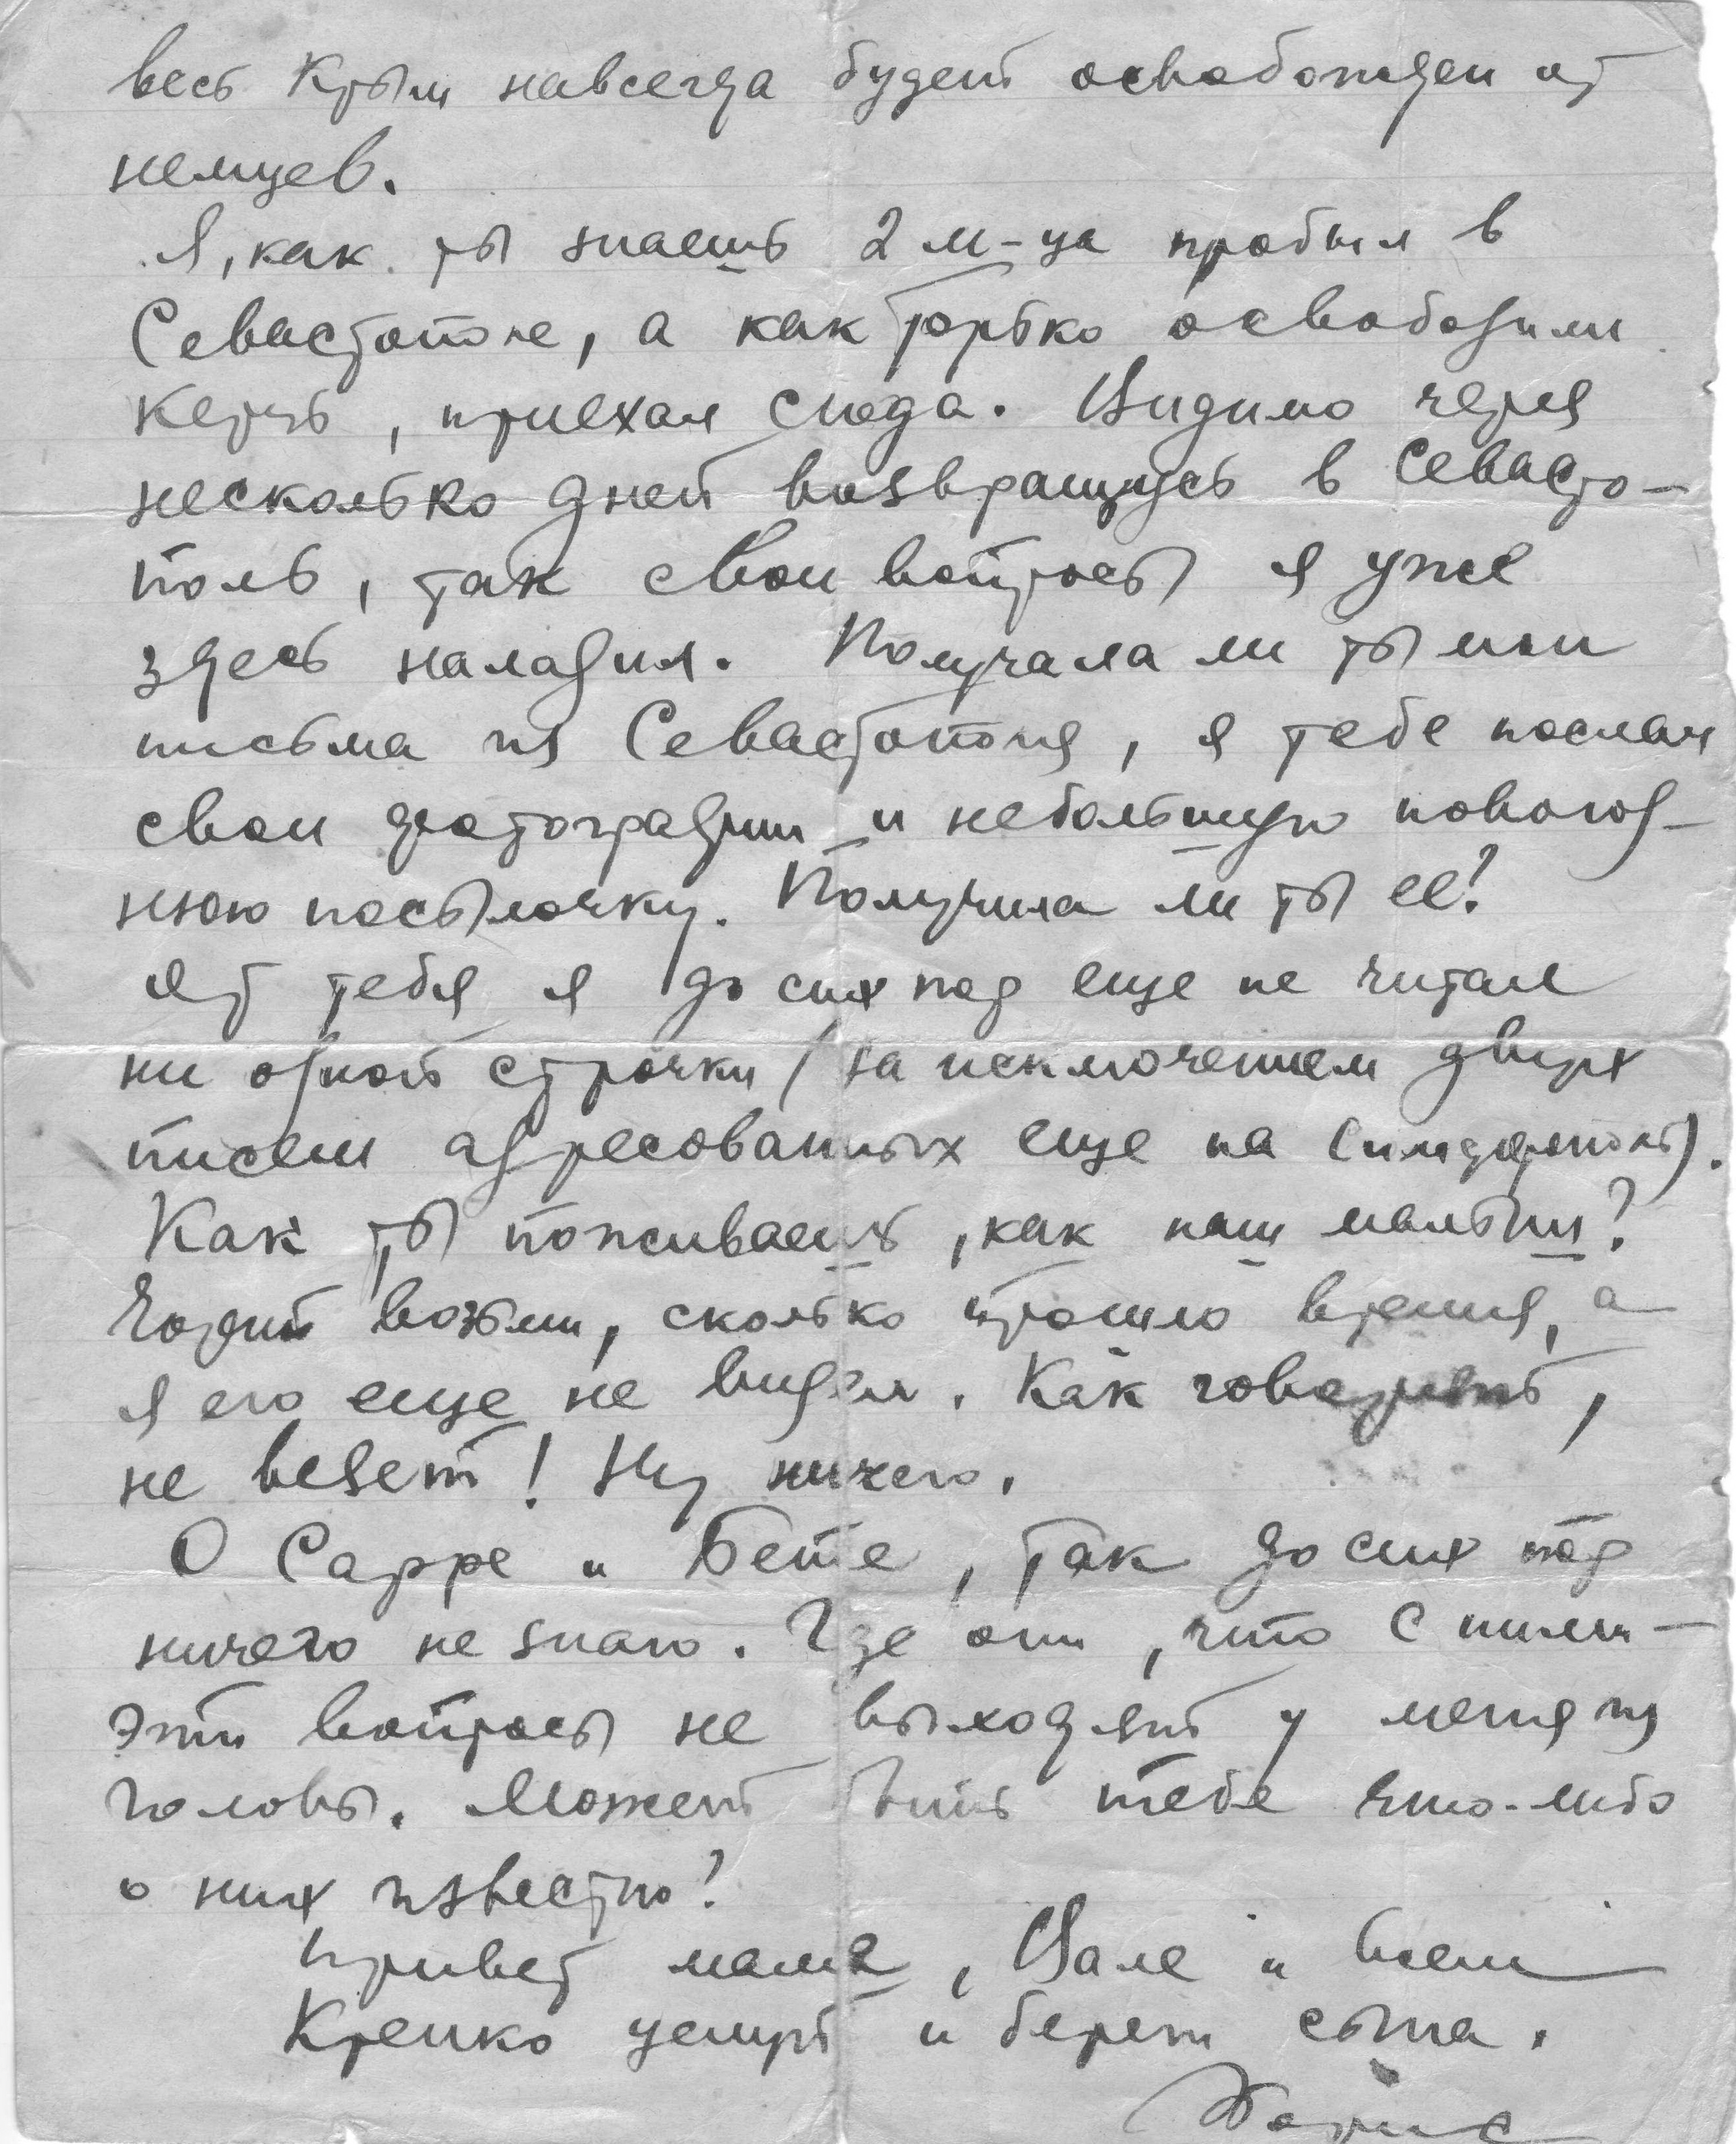 весь Крым навсегда будет освобожден от
немцев.
Я, как ты знаешь 2 м-ца пробыл в
Севастополе, а как только освободили
Керчь, приехал сюда. Видимо через
несколько дней возвращусь в Севасто-
поль, так свои вопросы я уже
здесь наладил. Получала ли ты мои
письма из Севастополя, я тебе послал
свои фотографии и небольшую новогод-
нюю посылочку. Получила ли ты ее?
От тебя я до сих пор еще не читал
ни одной строчки (за исключением двух
писем адресованных еще на Симферополь).
Как ты поживаешь, как наш малыш?
Чорт возьми, сколько прошло время, а
я его еще не видел. Как говорят,
не везет! Ну ничего.
О Сарре и Бете, так до сих пор
ничего не знаю. Где они, что с ними -
эти вопросы не выходят у меня из
головы. Может быть тебе что-либо
о них известно?
Привет маме, Вале и всем
Крепко целую и берегите сына.
Борис